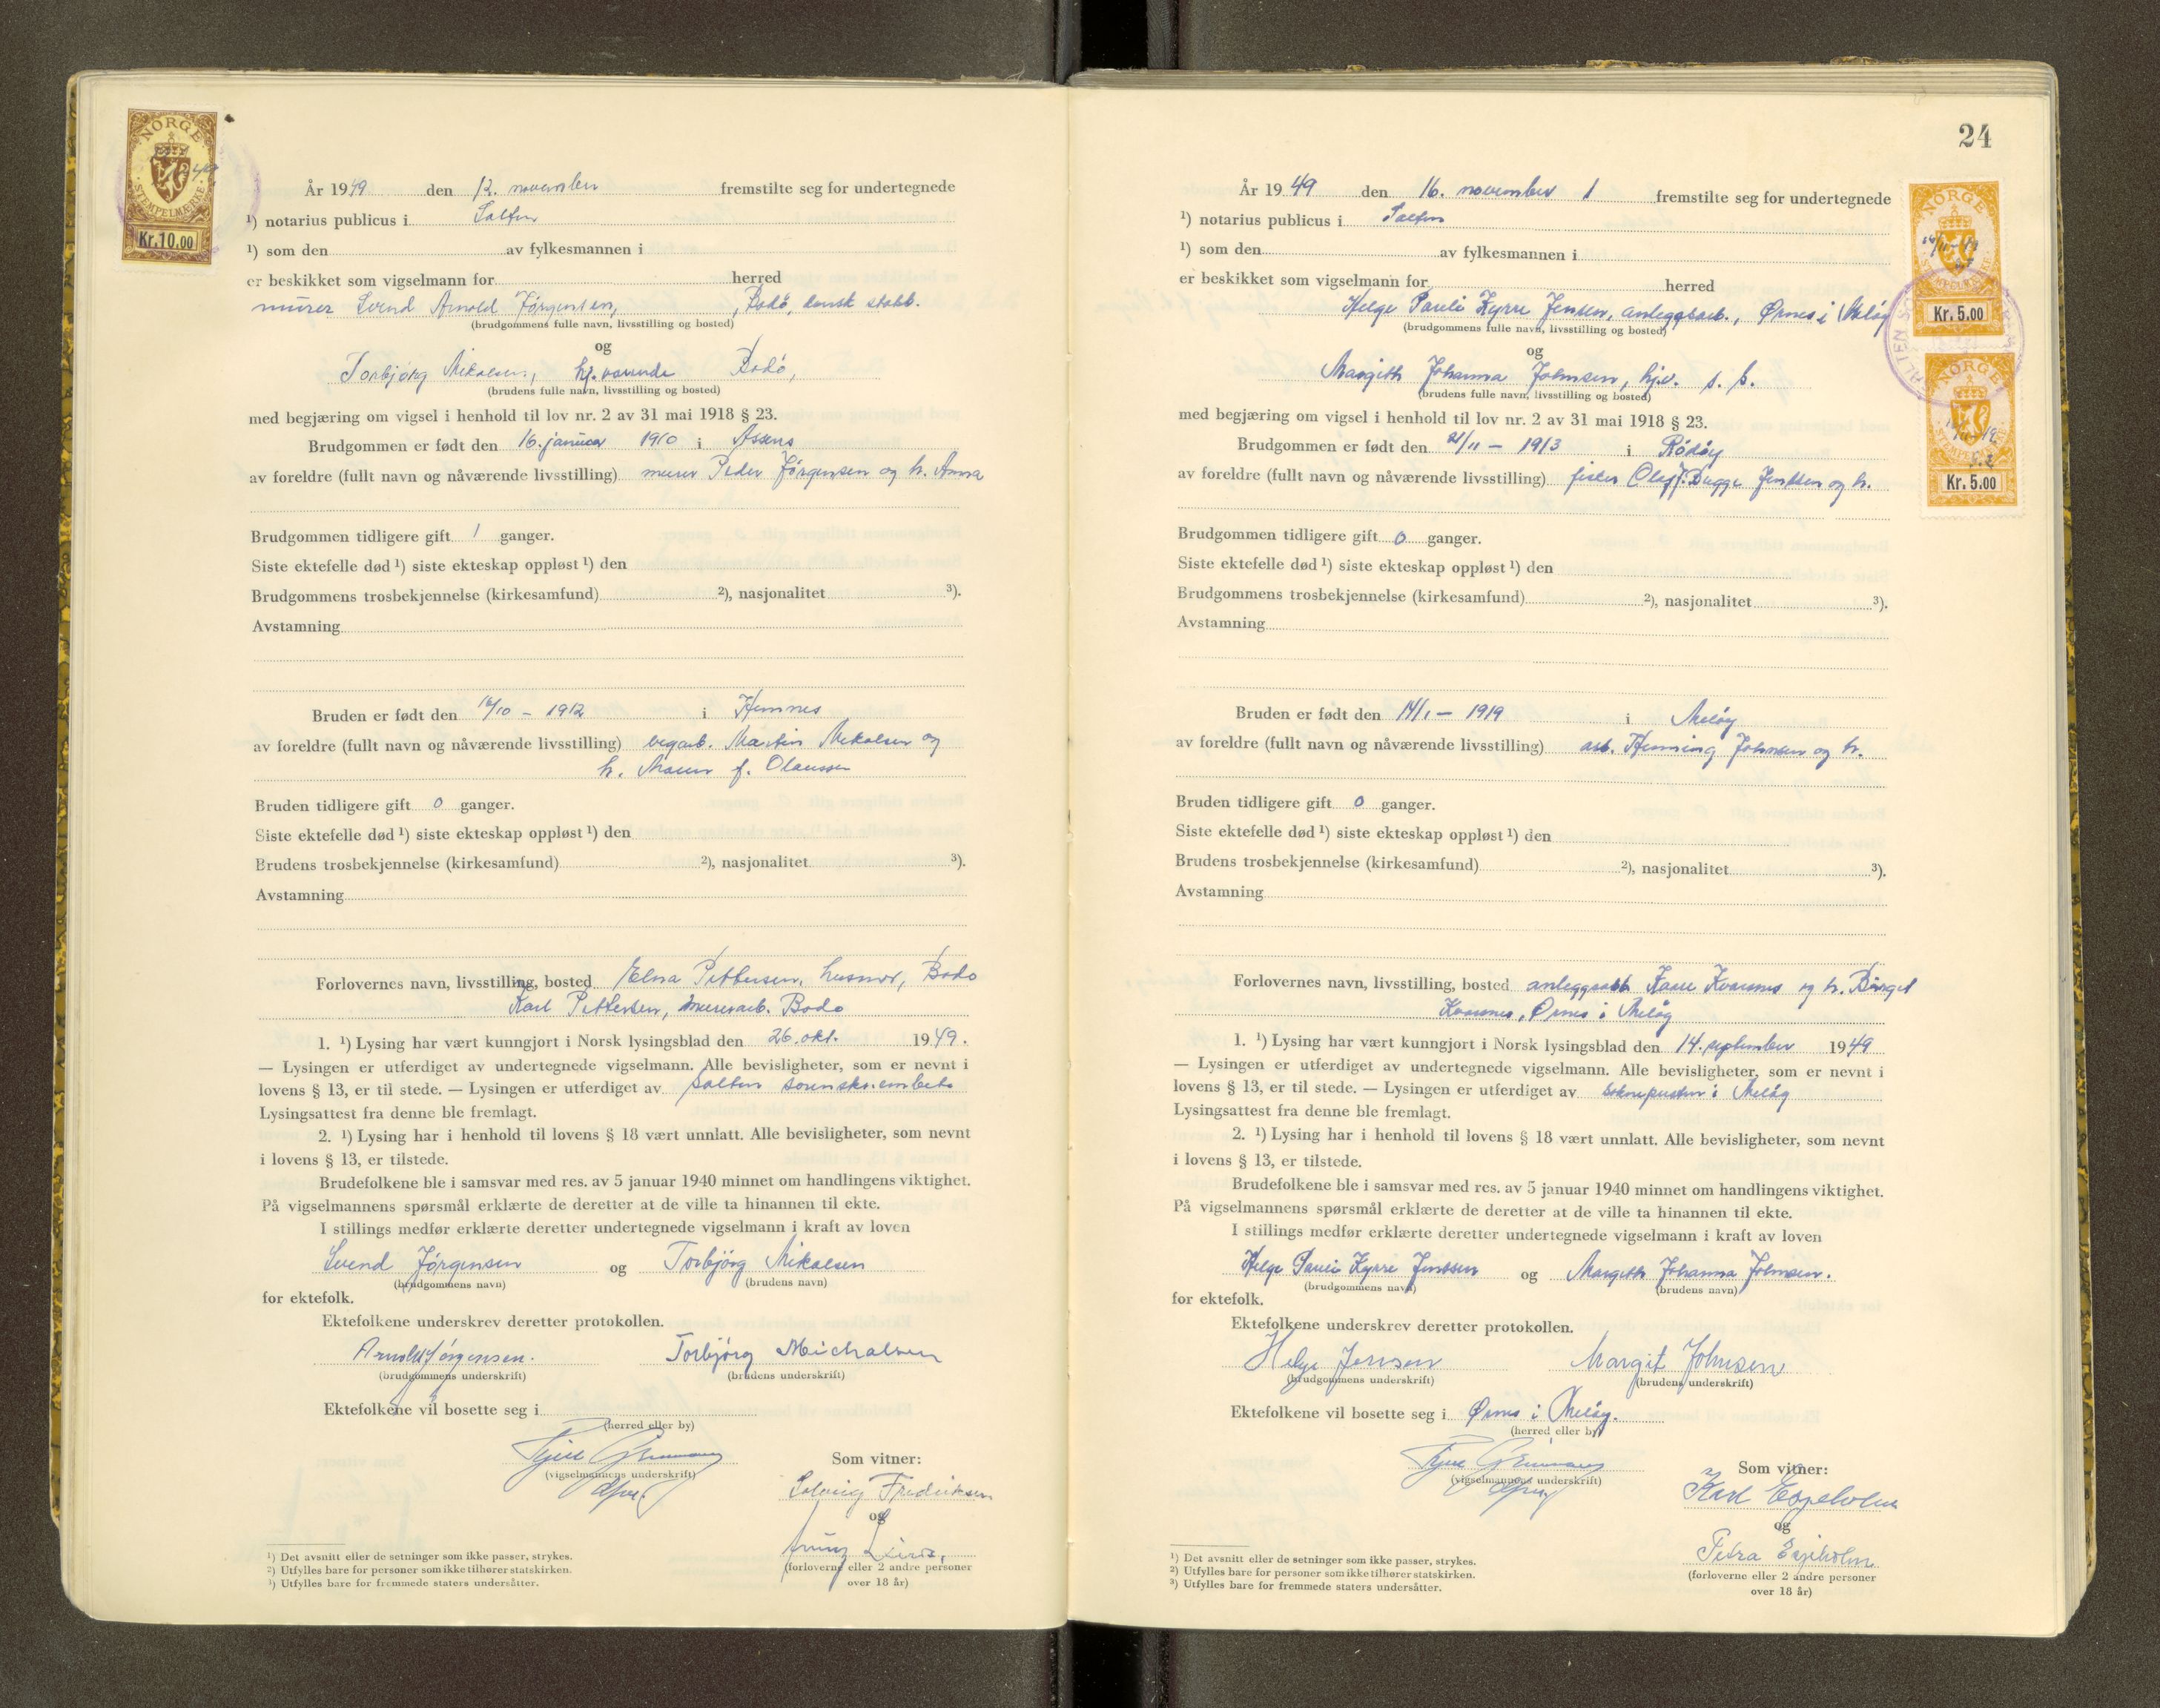 NORGE
STEMPELMÆRKE
Kr.10.00
År 1949 den 12. november fremstilte seg for undertegnede
¹) notarius publicus i Salten
¹) som den av fylkesmannen i
er beskikket som vigselmann for herred
murer Svend Arnold Jörgensen, , Bodö, dansk statb.
(brudgommens fulle navn, livsstilling og bosted)
og
Torbjörg Mikalsen, hj. værende Bodö,
(brudens fulle navn, livsstilling og bosted)
med begjæring om vigsel i henhold til lov nr. 2 av 31 mai 1918 § 23.
Brudgommen er født den 16. januar 1910 i Assens
av foreldre (fullt navn og nåværende livsstilling) murer Peder Jörgensen og h. Anna
Brudgommen tidligere gift 1 ganger.
Siste ektefelle død ¹) siste ekteskap oppløst ¹) den
Brudgommens trosbekjennelse (kirkesamfund) ²), nasjonalitet ³).
Avstamning
Bruden er født den 16/10 - 1912 i Hemnes
av foreldre (fullt navn og nåværende livsstilling) vegarb. Martin Mikalsen og
h. f. Olaussen
Bruden tidligere gift 0 ganger.
Siste ektefelle død ¹) siste ekteskap oppløst ¹) den
Brudens trosbekjennelse (kirkesamfund) ²), nasjonalitet ³).
Avstamning
Forlovernes navn, livsstilling, bosted Elna Pettersen, husmor, Bodo
Karl Pettersen, murerarb. Bodo
1. ¹) Lysing har vært kunngjort i Norsk lysingsblad den 26. okt. 1949.
— Lysingen er utferdiget av undertegnede vigselmann. Alle bevisligheter, som er nevnt i
lovens § 13, er til stede. — Lysingen er utferdiget av Salten sorenskr.embete
Lysingsattest fra denne ble fremlagt.
2. ¹) Lysing har i henhold til lovens § 18 vært unnlatt. Alle bevisligheter, som nevnt
i lovens § 13, er tilstede.
Brudefolkene ble i samsvar med res. av 5 januar 1940 minnet om handlingens viktighet.
På vigselmannens spørsmål erklærte de deretter at de ville ta hinannen til ekte.
I stillings medfør erklærte deretter undertegnede vigselmann i kraft av loven
Svend Jörgensen og Torbjörg Mikalsen
(brudgommens navn) (brudens navn)
for ektefolk.
Ektefolkene underskrev deretter protokollen.
Arnold Jörgensen. Torbjörg Meichalsen
(brudgommens underskrift) (brudens underskrift)
Ektefolkene vil bosette seg i
(herred eller by)
(vigselmannens underskrift)
Som vitner:
Solveig Fredriksen
og
(forloverne eller 2 andre personer
over 18 år)
¹) Det avsnitt eller de setninger som ikke passer, strykes.
²) Utfylles bare for personer som ikke tilhører statskirken.
³) Utfylles bare for fremmede staters undersåtter.
24
NORGE
Kr. 5.00
NORGE
Kr. 5.00
År 1949 den 16. november 1 fremstilte seg for undertegnede
¹) notarius publicus i Salten
¹) som den av fylkesmannen i
er beskikket som vigselmann for herred
Helge Pauli Kyrre Jensen, anleggsarb., Ørnes i Meløy
(brudgommens fulle navn, livsstilling og bosted)
og
Margith Johanna Johnsen, hj.v. s. s.
(brudens fulle navn, livsstilling og bosted)
med begjæring om vigsel i henhold til lov nr. 2 av 31 mai 1918 § 23.
Brudgommen er født den 21/11 - 1913 i Rödöy
av foreldre (fullt navn og nåværende livsstilling) fisker Jentsen og h.
Brudgommen tidligere gift 0 ganger.
Siste ektefelle død ¹) siste ekteskap oppløst ¹) den
Brudgommens trosbekjennelse (kirkesamfund) ²), nasjonalitet ³).
Avstamning
Bruden er født den 14/1 - 1919 i Melöy
av foreldre (fullt navn og nåværende livsstilling) arb. Henning Johnsen og h.
Bruden tidligere gift 0 ganger.
Siste ektefelle død ¹) siste ekteskap oppløst ¹) den
Brudens trosbekjennelse (kirkesamfund) ²), nasjonalitet ³).
Avstamning
Forlovernes navn, livsstilling, bosted anleggsarb. Kaare Kvarsnes og h. Birgit
Kvarsnes, Ørnes i Melöy
1. ¹) Lysing har vært kunngjort i Norsk lysingsblad den 14. september 1949
— Lysingen er utferdiget av undertegnede vigselmann. Alle bevisligheter, som er nevnt i
lovens § 13, er til stede. — Lysingen er utferdiget av soknepresten i Melöy
Lysingsattest fra denne ble fremlagt.
2. ¹) Lysing har i henhold til lovens § 18 vært unnlatt. Alle bevisligheter, som nevnt
i lovens § 13, er tilstede.
Brudefolkene ble i samsvar med res. av 5 januar 1940 minnet om handlingens viktighet.
På vigselmannens spørsmål erklærte de deretter at de ville ta hinannen til ekte.
I stillings medfør erklærte deretter undertegnede vigselmann i kraft av loven
Helge Pauli Kyrre Jentsen og Margith Johanna Johnsen.
(brudgommens navn) (brudens navn)
for ektefolk.
Ektefolkene underskrev deretter protokollen.
Helge Jensen Margit Johnsen
(brudgommens underskrift) (brudens underskrift)
Ektefolkene vil bosette seg i Ørnes i Melöy.
(herred eller by)
(vigselmannens underskrift)
Som vitner:
Karl Espeholm
og
Petra Espeholm
(forloverne eller 2 andre personer
over 18 år)
¹) Det avsnitt eller de setninger som ikke passer, strykes.
²) Utfylles bare for personer som ikke tilhører statskirken.
³) Utfylles bare for fremmede staters undersåtter.